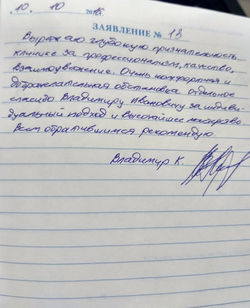 10. 10 2015
ЗАЯВЛЕНИЕ № 13
Выражаю глубокую признательность
клинике за профессионализм, качество,
взаимоуважение. Очень комфортная и
доброжелательная обстановка, отдельное
спасибо Владимиру Ивановичу за индиви
дуальный подход и высочайшее мастерство
Всем обратившимся рекомендую
Владимир К.